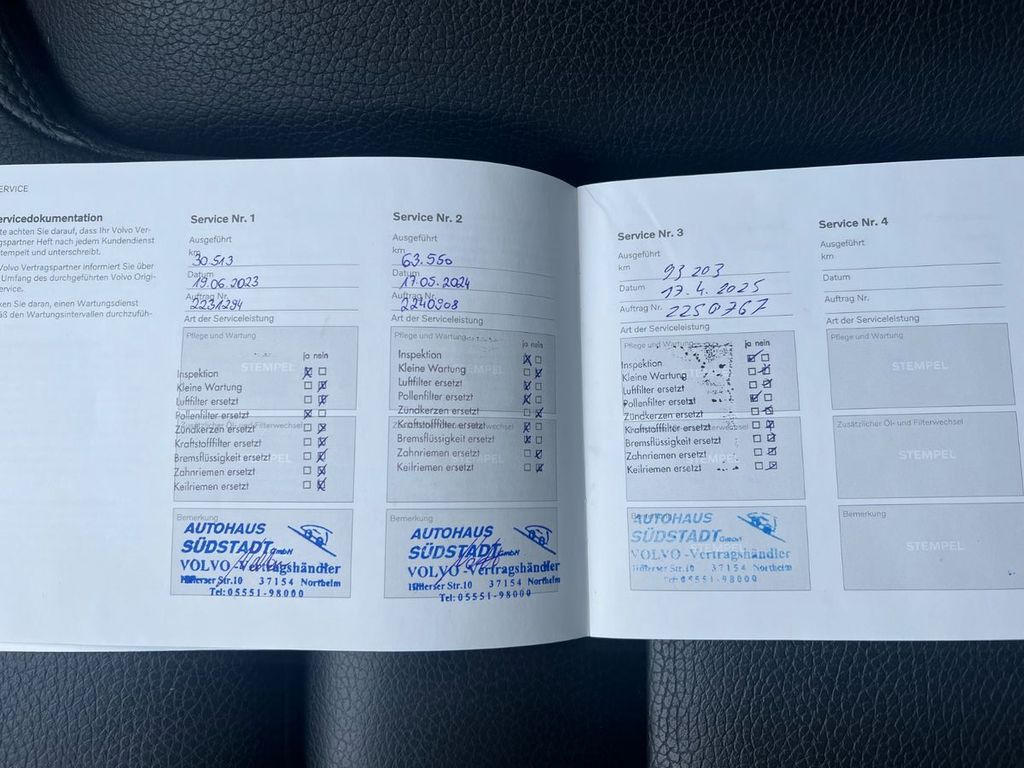 ERVICE
ervicedokumentation
te achten Sie darauf, dass Ihr Volvo Ver-
gspartner Heft nach jedem Kundendienst
tempelt und unterschreibt.
Volvo Vertragspartner informiert Sie über
Umfang des durchgeführten Volvo Origi-
ervice.
ken Sie daran, einen Wartungsdienst
äß den Wartungsintervallen durchzufüh-
Service Nr. 1
Ausgeführt
km 30.513
Datum 19.06.2023
Auftrag Nr. 2231294
Art der Serviceleistung
Pflege und Wartung
STEMPEL
ja nein
Inspektion
Kleine Wartung
Luftfilter ersetzt
Pollenfilter ersetzt
Zusätzlicher Öl- und Filterwechsel
Zündkerzen ersetzt
Kraftstofffilter ersetzt
Bremsflüssigkeit ersetzt
Zahnriemen ersetzt
Keilriemen ersetzt
Bemerkung
AUTOHAUS
SÜDSTADT GmbH
VOLVO-Vertragshändler
Str.10 37154 Northeim
Tel:05551-98000
Service Nr. 2
Ausgeführt
km 63.550
Datum 17.05.2024
Auftrag Nr. 2240908
Art der Serviceleistung
Pflege und Wartung
ja nein
Inspektion
Kleine Wartung
Luftfilter ersetzt
Pollenfilter ersetzt
Zündkerzen ersetzt
Kraftstofffilter ersetzt
Bremsflüssigkeit ersetzt
Zahnriemen ersetzt
STEMPEL
Keilriemen ersetzt
Bemerkung
AUTOHAUS
SÜDSTADT GmbH
VOLVO-Vertragshändler
Str.10 37154 Northeim
Tel:05551-98000
Service Nr. 3
Ausgeführt
km 93 203
Datum 17.4.2025
Auftrag Nr. 2250767
Art der Serviceleistung
Pflege und Wartung
ja nein
Inspektion
Kleine Wartung
Luftfilter ersetzt
Pollenfilter ersetzt
Zündkerzen ersetzt
Kraftstofffilter ersetzt
Bremsflüssigkeit ersetzt
Zahnriemen ersetzt
Keilriemen ersetzt
AUTOHAUS
SÜDSTADT GmbH
STEMPEL
VOLVO-Vertragshändler
Str.10 37154 Northeim
Tel:05551-98000
Service Nr. 4
Ausgeführt
km
Datum
Auftrag Nr.
Art der Serviceleistung
Pflege und Wartung
STEMPEL
Zusätzlicher Öl- und Filterwechsel
STEMPEL
Bemerkung
STEMPEL